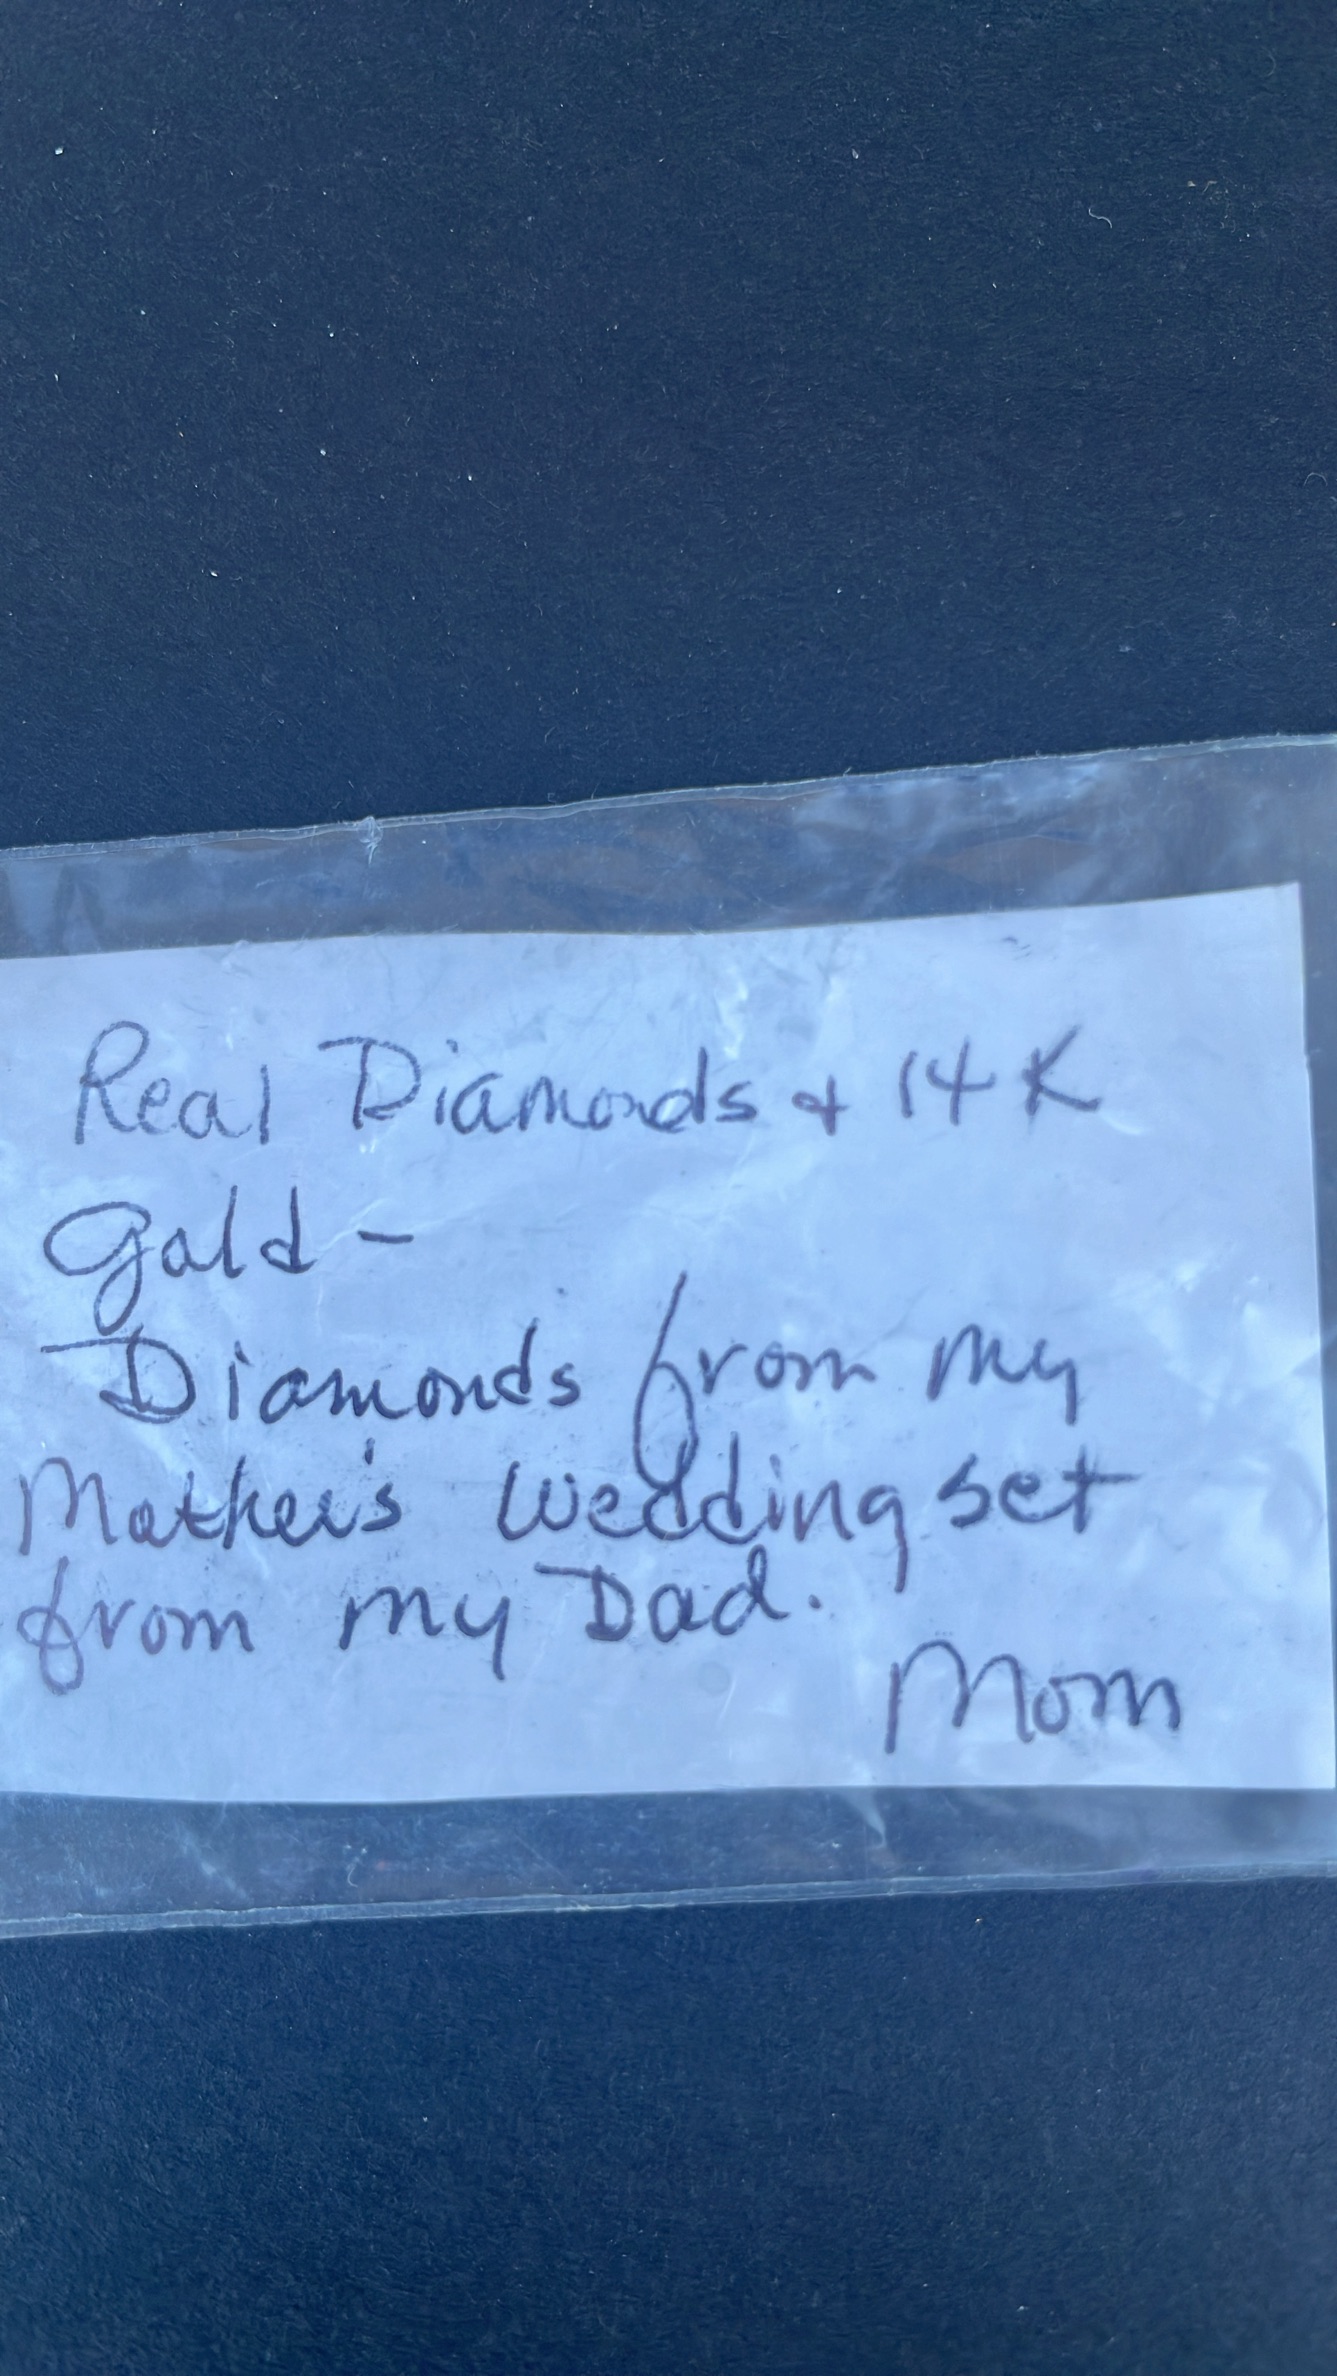 Real Diamonds & 14K
Gold -
Diamonds from my
Mother's Wedding set
from my Dad.
Mom